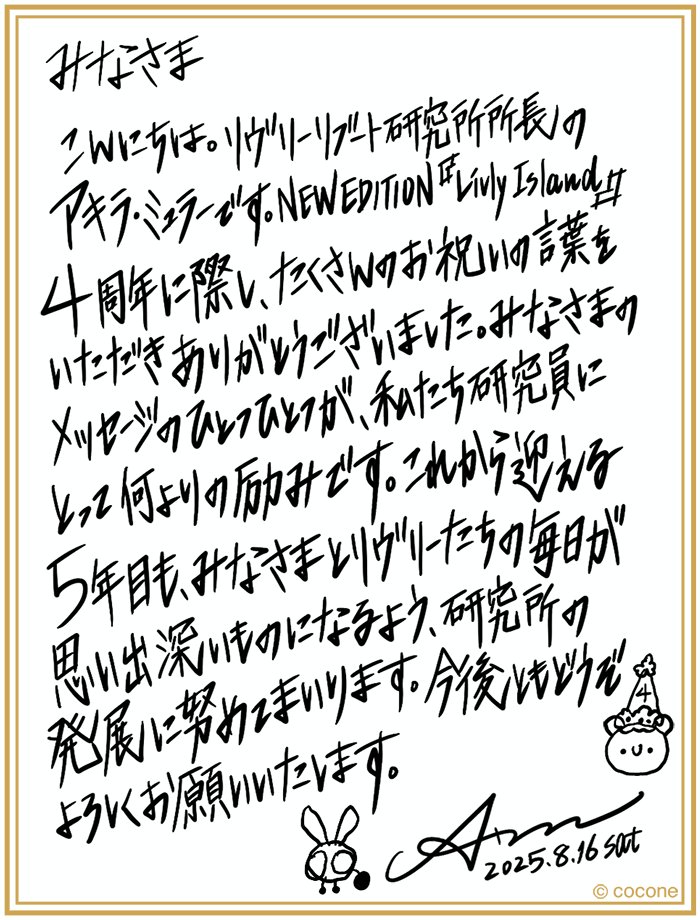 みなさま
こんにちは。リヴリーリブート研究所所長の
アキラ・ミュラーです。NEW EDITION『Livly Island』
4周年に際し、たくさんのお祝いの言葉を
いただきありがとうございました。みなさまの
メッセージのひとつひとつが、私たち研究員に
とって何よりの励みです。これから迎える
5年目も、みなさまとリヴリーたちの毎日が
思い出深いものになるよう、研究所の
発展に努めてまいります。今後ともどうぞ
よろしくお願いいたします。
4
2025.8.16 sat
© cocone